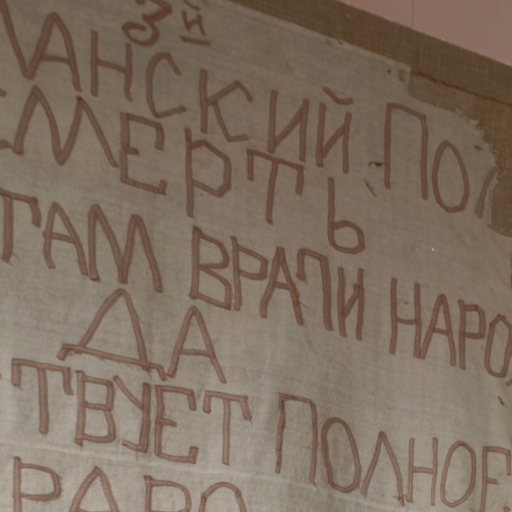 3й
ЛАНСКИЙ ПОЛ
СМЕРТЬ
ТАМ ВРАГИ НАРО
ДА
ТВУЕТ ПОЛНОЕ
РАВО